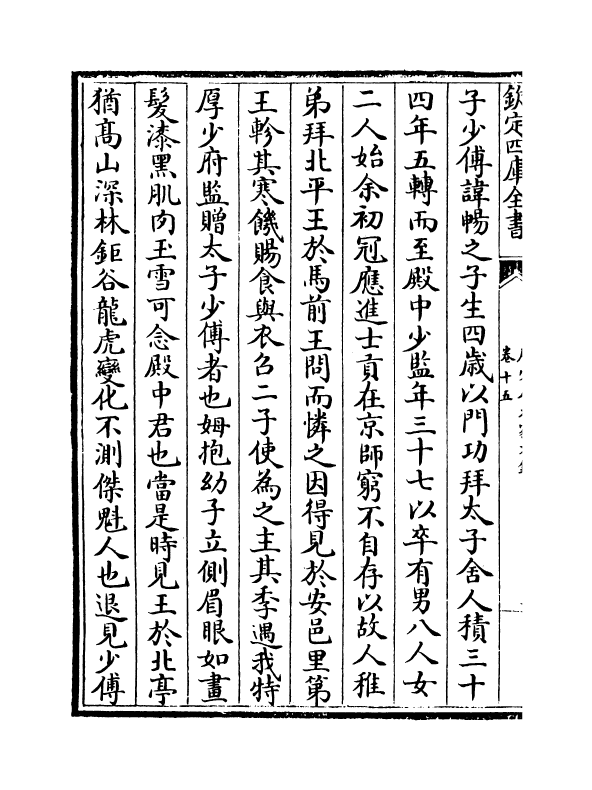 欽定四庫全書
卷十五
子少傅諱暢之子生四歲以門功拜太子舍人積三十
四年五轉而至殿中少監年三十七以卒有男八人女
二人始余初冠應進士貢在京師窮不自存以故人稚
弟拜北平王於馬前王問而憐之因得見於安邑里第
王軫其寒饑賜食與衣召二子使為之主其季遇我特
厚少府監贈太子少傅者也姆抱幼子立側眉眼如畫
髮漆黑肌肉玉雪可念殿中君也當是時見王於北亭
猶高山深林鉅谷龍虎變化不測傑魁人也退見少傅